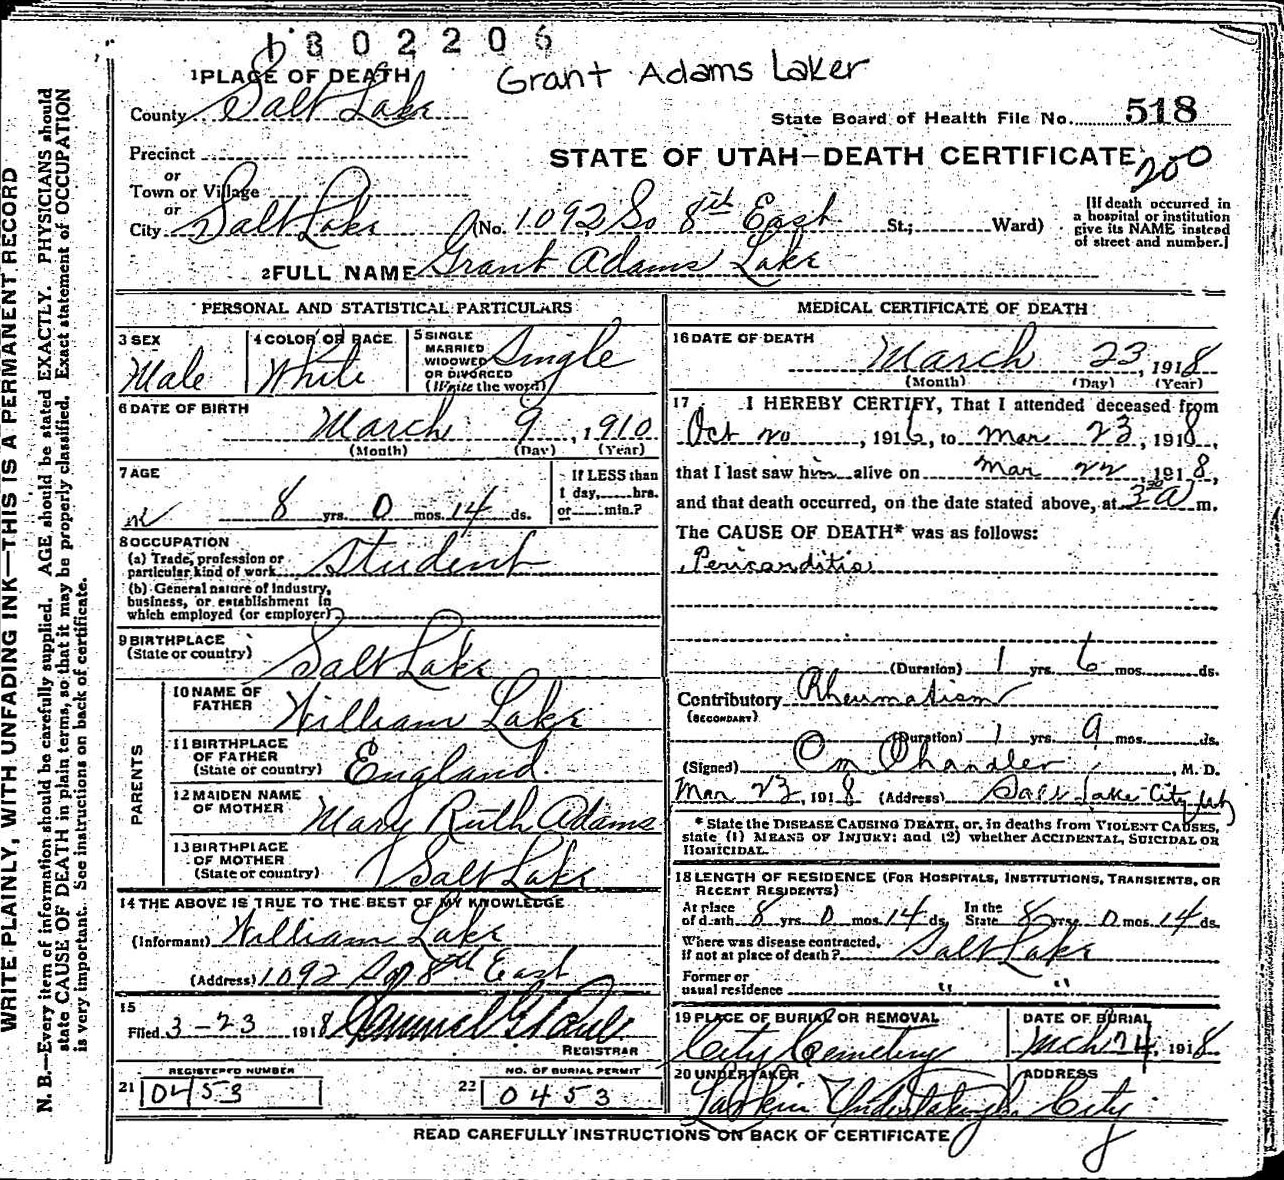 1802206
Grant Adams Laker
1 PLACE OF DEATH
County Salt Lake
State Board of Health File No. 518
Precinct
or
Town or Village
or
STATE OF UTAH—DEATH CERTIFICATE
200
City Salt Lake (No. 1092 So 8th East St.; Ward)
[If death occurred in a hospital or institution give its NAME instead of street and number.]
2 FULL NAME Grant Adams Lake
PERSONAL AND STATISTICAL PARTICULARS
3 SEX
Male
4 COLOR OR RACE
White
5 SINGLE
MARRIED
WIDOWED
OR DIVORCED
(Write the word)
Single
6 DATE OF BIRTH
March 9, 1910
(Month) (Day) (Year)
7 AGE
8 yrs. 0 mos. 14 ds.
If LESS than
1 day,......hrs.
or......min.?
8 OCCUPATION
(a) Trade, profession or
particular kind of work Student
(b) General nature of industry,
business, or establishment in
which employed (or employer)
9 BIRTHPLACE
(State or country)
Salt Lake
PARENTS
10 NAME OF
FATHER
William Lake
11 BIRTHPLACE
OF FATHER
(State or country)
England
12 MAIDEN NAME
OF MOTHER
Mary Ruth Adams
13 BIRTHPLACE
OF MOTHER
(State or country)
Salt Lake
14 THE ABOVE IS TRUE TO THE BEST OF MY KNOWLEDGE
(Informant) William Lake
(Address) 1092 So 8th East
15
Filed 3-23 1918
REGISTRAR
REGISTERED NUMBER
21 0453
NO. OF BURIAL PERMIT
22 0453
MEDICAL CERTIFICATE OF DEATH
16 DATE OF DEATH
March 23, 1918
(Month) (Day) (Year)
17 I HEREBY CERTIFY, That I attended deceased from
Oct 20, 1916, to Mar 23, 1918,
that I last saw him alive on Mar 22 1918,
and that death occurred, on the date stated above, at 3 a m.
The CAUSE OF DEATH* was as follows:
Pericarditis
(Duration) 1 yrs. 6 mos. ds.
Contributory Rheumatism
(SECONDARY)
(Duration) 1 yrs. 9 mos. ds.
(Signed) Chandler, M. D.
Mar 23, 1918 (Address) Salt Lake City Ut
* State the DISEASE CAUSING DEATH, or, in deaths from VIOLENT CAUSES,
state (1) MEANS OF INJURY; and (2) whether ACCIDENTAL, SUICIDAL OR
HOMICIDAL.
18 LENGTH OF RESIDENCE (FOR HOSPITALS, INSTITUTIONS, TRANSIENTS, OR
RECENT RESIDENTS)
At place
of death 8 yrs. 0 mos. 14 ds.
In the
State 8 yrs. 0 mos. 14 ds.
Where was disease contracted,
if not at place of death? Salt Lake
Former or
usual residence " "
19 PLACE OF BURIAL OR REMOVAL
City Cemetery
DATE OF BURIAL
Mch 24, 1918
20 UNDERTAKER
Larkin Undertaking
ADDRESS
City
READ CAREFULLY INSTRUCTIONS ON BACK OF CERTIFICATE
WRITE PLAINLY, WITH UNFADING INK—THIS IS A PERMANENT RECORD
N. B.—Every item of information should be carefully supplied. AGE should be stated EXACTLY. PHYSICIANS should
state CAUSE OF DEATH in plain terms, so that it may be properly classified. Exact statement of OCCUPATION
is very important. See instructions on back of certificate.